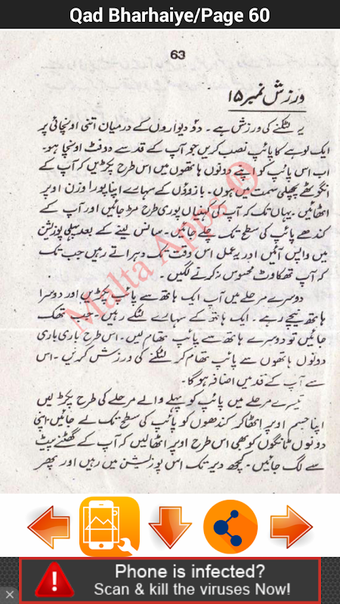 Qad Bharhaiye/Page 60
63
ورزش نمبر ۱۵
یہ لٹکنے کی ورزش ہے۔ دو دیواروں کے درمیان اتنی اونچائی پر
ایک لوہے کا پائپ نصب کریں جو آپ کے قد سے دو فٹ اونچا ہو۔
اب اس پائپ کو اپنے دونوں ہاتھوں میں اس طرح پکڑیں کہ آپ کے
انگوٹھے پچھلی سمت میں ہوں۔ بازوؤں کے سہارے اپنا پورا وزن اوپر
اٹھائیں یہاں تک کہ آپ کی کہنیاں پوری طرح مڑ جائیں اور آپ کے
کندھے پائپ کی سطح تک پہنچ جائیں۔ سانس لینے کے بعد پہلی پوزیشن
میں واپس آئیں اور یہ عمل اس وقت تک دہراتے رہیں جب تک
کہ آپ تھکاوٹ محسوس نہ کرنے لگیں۔
دوسرے مرحلے میں آپ ایک ہاتھ سے پائپ پکڑیں اور دوسرا
ہاتھ نیچے رہے۔ ایک ہاتھ کے سہارے لٹکے رہیں۔ جب تھک
جائیں تو دوسرے ہاتھ سے پائپ تھام لیں۔ اس طرح باری باری
دونوں ہاتھوں سے پائپ تھام کر لٹکنے کی ورزش کریں۔ اس
سے آپ کے قد میں اضافہ ہوگا۔
تیسرے مرحلے میں پائپ کو پہلے والے مرحلے کی طرح پکڑ لیں
اپنا جسم اوپر اٹھا کر کندھوں کو پائپ کی سطح تک لے جائیں اپنی
دونوں ٹانگوں کو بھی اس طرح اوپر اٹھا لیں کہ آپ کے گھٹنے پیٹ
سے لگ جائیں۔ کچھ دیر تک اس پوزیشن میں رہیں اور پھر
Malta Apps ©
Phone is infected?
Scan & kill the viruses Now!